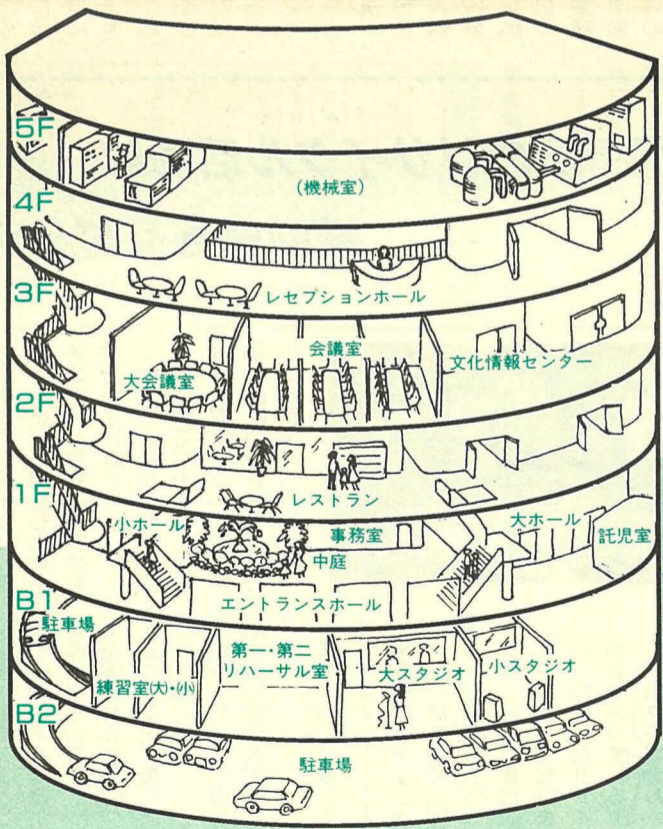 5F
(機械室)
4F
レセプションホール
3F
会議室
大会議室
文化情報センター
2F
レストラン
1F
小ホール
事務室
大ホール
託児室
中庭
エントランスホール
B1
駐車場
第一・第二
リハーサル室
大スタジオ
小スタジオ
練習室(大)・(小)
B2
駐車場